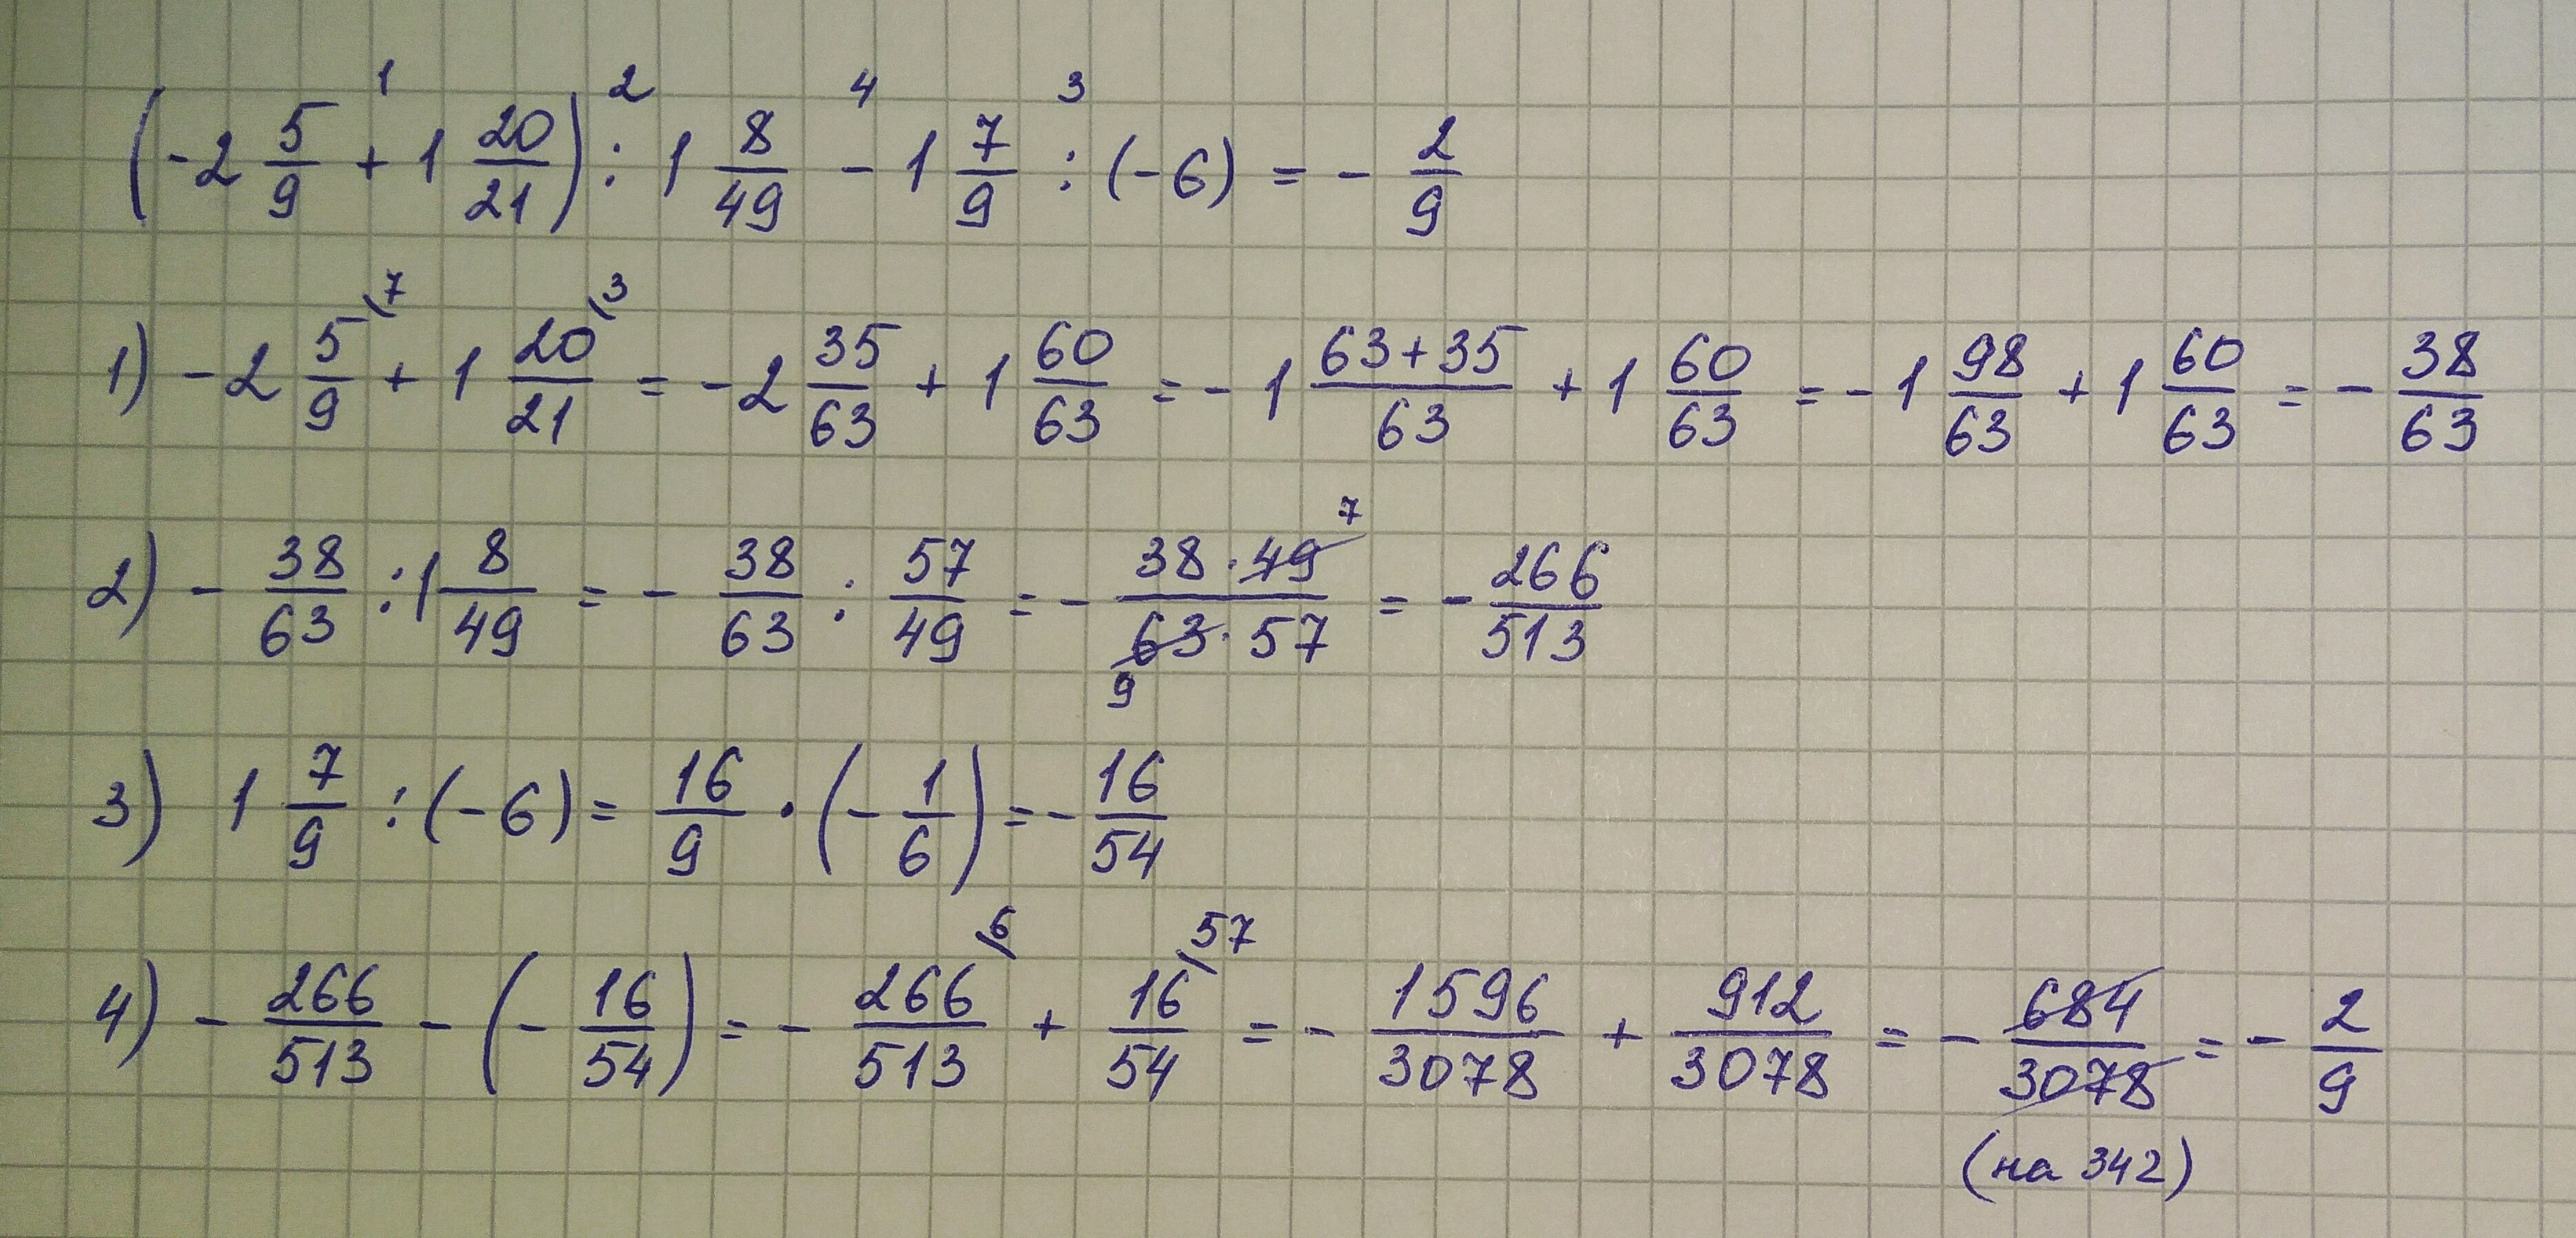 (-2 5/9 + 1 20/21) : 1 8/49 - 1 7/9 : (-6) = - 2/9
1 2 4 3
1) -2 5/9 + 1 20/21 = -2 35/63 + 1 60/63 = -1 (63+35)/63 + 1 60/63 = -1 98/63 + 1 60/63 = - 38/63
7 3
2) - 38/63 : 1 8/49 = - 38/63 : 57/49 = - (38·49)/(63·57) = - 266/513
7 9
3) 1 7/9 : (-6) = 16/9 · (- 1/6) = - 16/54
4) - 266/513 - (- 16/54) = - 266/513 + 16/54 = - 1596/3078 + 912/3078 = - 684/3078 = - 2/9
6 57
(на 342)